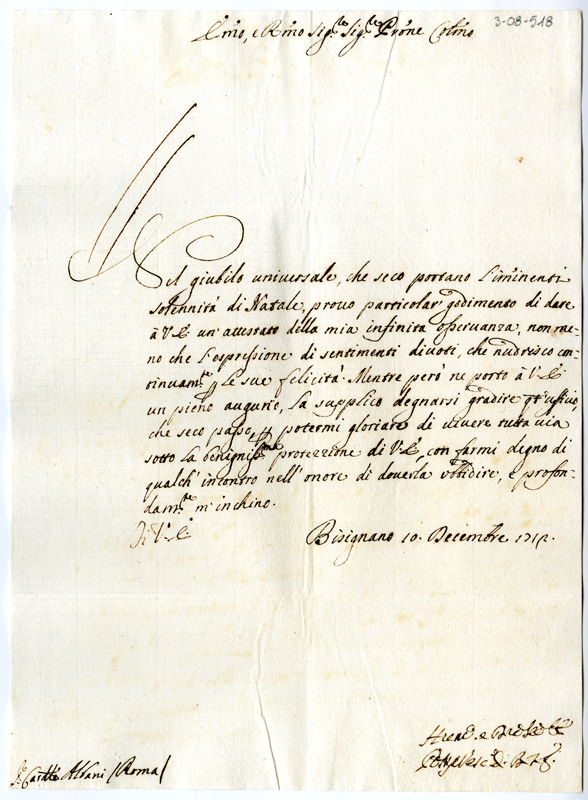 3-08-518
Emo, e Rmo Sig.re Sig.re Prone Colmo
Nel giubilo universale, che seco portano l'imminenti
solennità di Natale, provo particolar godimento di dare
à V.E. un attestato della mia infinita osservanza, non me-
no che l'espressione di sentimenti divoti, che nudrisco con-
tinuam.te p le sue felicità. Mentre però ne porto à V.E.
un pieno augurio, la supplico degnarsi gradire qt'uffizio,
che seco passo, p potermi gloriare di vivere tutta via
sotto la benigniss.ma protezzione di V.E., con farmi degno di
qualch'incontro nell'onore di doverla ubbidire, e profon-
dam.te m'inchino.
Di V.E.
Bisignano 10. Decembre 1712.
S.r Cardle Albani (Roma)